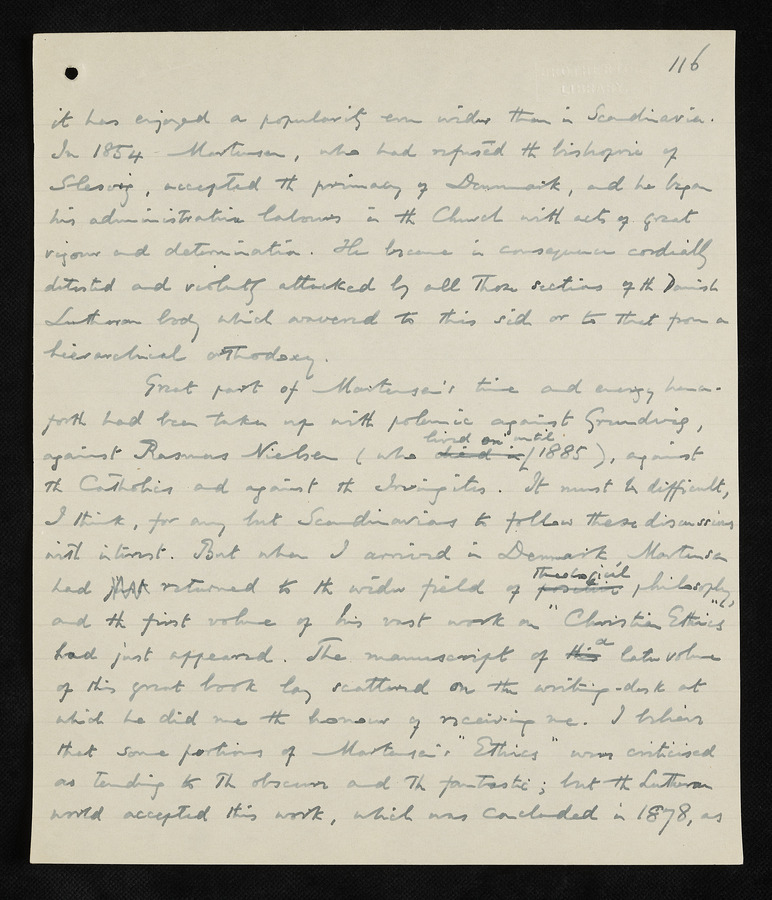 116
it has enjoyed a popularity even wider than in Scandinavia.
In 1854 Martensen, who had refused the bishopric of
Slesvig, accepted the primacy of Denmark, and he began
his administrative labours in the Church with acts of great
vigour and determination. He became in consequence cordially
detested and violently attacked by all those sections of the Danish
Lutheran body which wavered to this side or to that from a
hierarchical orthodoxy.
Great part of Martensen's time and energy hence-
forth had been taken up with polemic against Grundtvig,
lived on until
against Rasmus Nielsen (who died in 1885), against
the Catholics and against the Irvingites. It must be difficult,
I think, for any but Scandinavians to follow these discussions
with interest. But when I arrived in Denmark Martensen
theological
had returned to the wider field of positive philosophy,
and the first volume of his vast work on "Christian Ethics"
a
had just appeared. The manuscript of this later volume
of this great book lay scattered on the writing-desk at
which he did me the honour of receiving me. I believe
that some portions of Martensen's "Ethics" were criticised
as tending to the obscure and the fantastic; but the Lutheran
world accepted this work, which was concluded in 1878, as